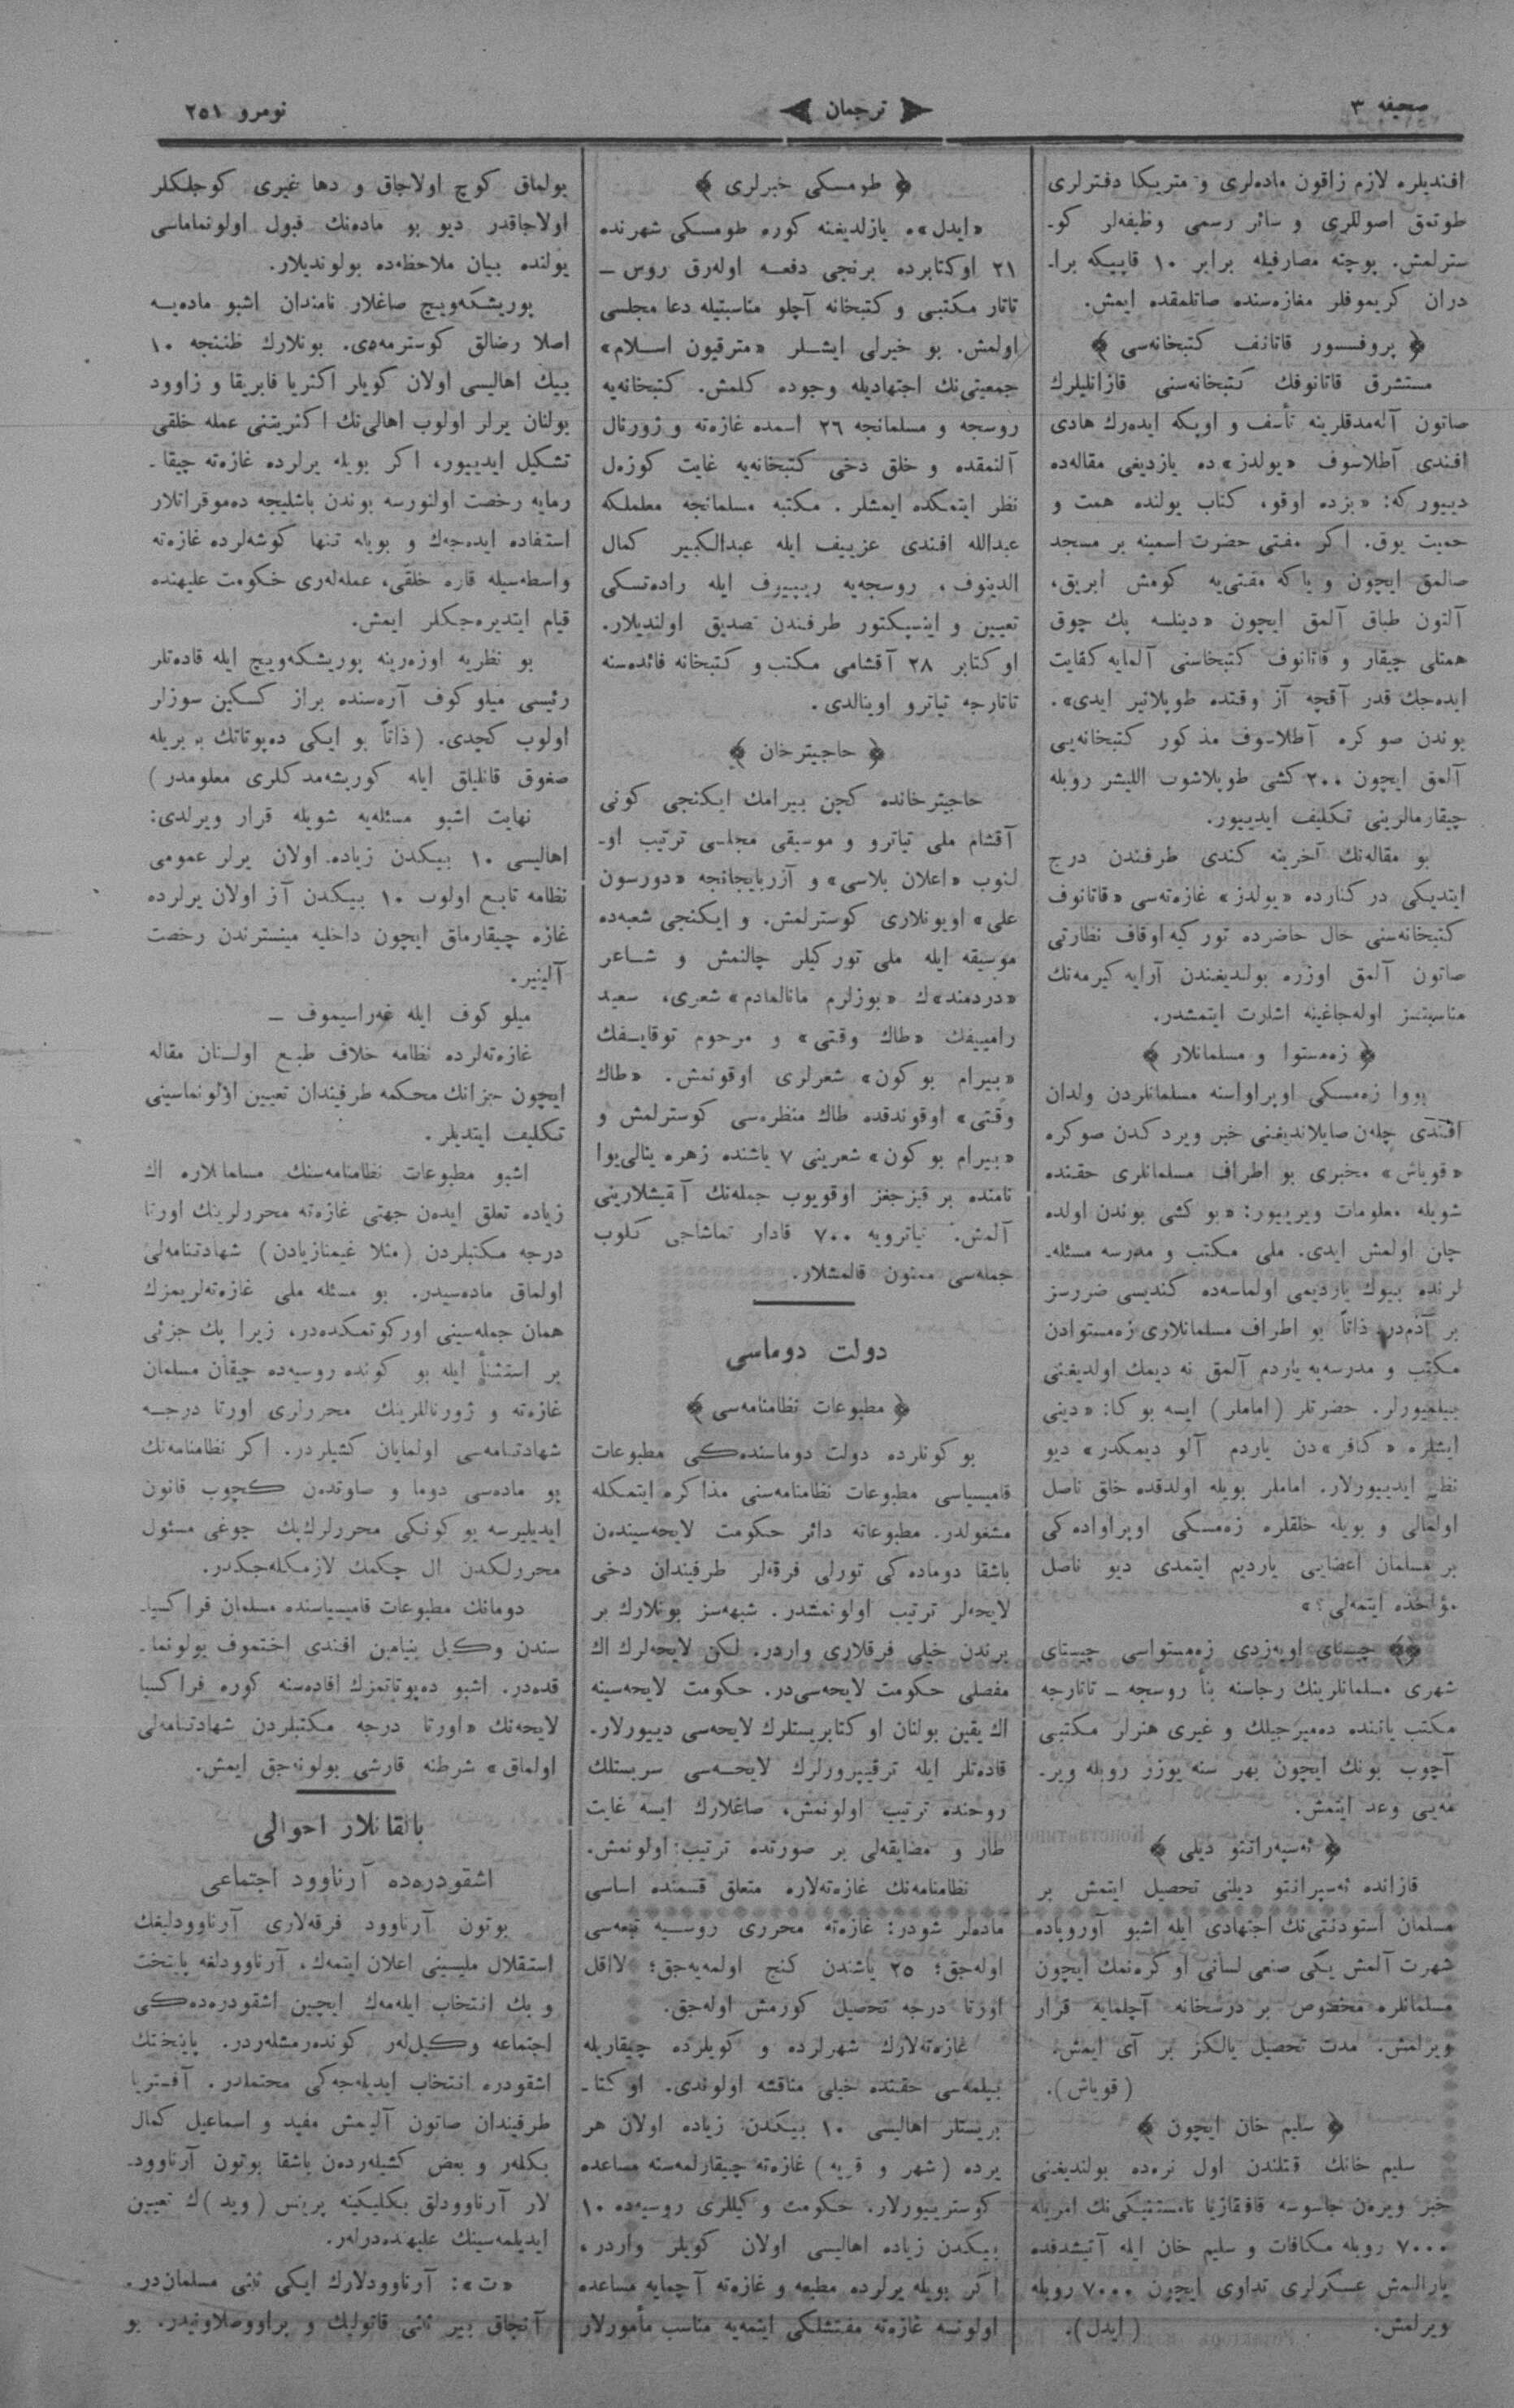 صحیفه ٣
ترجمان
نومرو ٢٥١
افندیلره لازم زاقون ماده‌لری و متریكا دفترلری
طوتمق اصوللری و سائر رسمی وظیفه‌لر كو-
سترلمش. پوچته مصارفیله برابر ١٠ قاپیكه برا-
دران كریموفلر مغازه‌سنده صاتلمقده ایمش.
﴿ پروفسور قاتانف كتبخانه‌سی ﴾
مستشرق قاتانوفك كتبخانه‌سنی قازانلیلرك
صاتون آله‌مدقلرینه تأسف و اوپكه ایده‌رك هادی
افندی آطلاسوف «یولدز»ده یازدیغی مقاله‌ده
دییوركه: «بزده اوقو، كتاب یولنده همت و
حمیت یوق. اكر مفتی حضرت اسمینه بر مسجد
صالمق ایچون و یاكه مفتی‌یه كومش ابریق،
آلتون طباق آلمق ایچون «دینلسه پك چوق
همتلی چیقار و قاتانوف كتبخاسنی آلمایه كفایت
ایده‌جك قدر آقچه آز وقتده طوپلانیر ایدی».
بوندن صوكره آطلاسوف مذكور كتبخانه‌یی
آلمق ایچون ٢٠٠ كشی طوپلاشوب اللیشر روبله
چیقارمالرینی تكلیف ایدییور.
بو مقاله‌نك آخرینه كندی طرفندن درج
ایتدیكی دركنارده «یولدز» غازه‌ته‌سی «قاتانوف
كتبخانه‌سنی حال حاضرده توركیه اوقاف نظارتی
صاتون آلمق اوزره بولندیغندن آرایه كیرمه‌نك
مناسبتسز اوله‌جاغینه اشارت ایتمشدر.
﴿ زه‌مستوا و مسلمانلار ﴾
بووا زه‌مسكی اوپراواسنه مسلمانلردن ولدان
افندی چله‌ن صایلاندیغنی خبر ویردكدن صوكره
«قویاش» مخبری بو اطراف مسلمانلری حقنده
شویله معلومات ویرییور: «بو كشی بوندن اولده
چلن اولمش ایدی. ملی مكتب و مدرسه مسئله-
لرنده بیوك یاردیمی اولماسه‌ده كندیسی ضررسز
بر آدمدر. ذاتاً بو اطراف مسلمانلاری زه‌مستوادن
مكتب و مدرسه‌یه یاردم آلمق نه دیمك اولدیغنی
بیلمیورلر. حضرتلر (اماملر) ایسه بوكا: «دینی
ایشلره «كافر»دن یاردم آلو دیمكدر» دیو
نظر ایدییورلار. اماملر بویله اولدقده خلق ناصل
اولمالی و بویله خلقلره زه‌مسكی اوپراواده‌كی
بر مسلمان اعضایی یاردیم ایتمدی دیو ناصل
مؤاخذه ایتمه‌لی؟»
﴿﴾ چیستای اویه‌زدی زه‌مستواسی چیستای
شهری مسلمانلرینك رجاسنه بنأ روسچه ــ تاتارجه
مكتب یاننده ده‌میرجیلك و غیری هنرلر مكتبی
آچوب بونك ایچون بهر سنه یوزر روبله ویر-
مه‌یی وعد ایتمش.
﴿ ئه‌سپه‌رانتو دیلی ﴾
قازانده ئه‌سپرانتو دیلنی تحصیل ایتمش بر
مسلمان استودنتی‌نك اجتهادی ایله اشبو آوروپاده
شهرت آلمش یكی صنعی لسانی اوكره‌نمك ایچون
مسلمانلره مخصوص بر درسخانه آچلمایه قرار
ویرلمش. مدت تحصیل یالكز بر آی ایمش.
(قویاش).
﴿ سلیم خان ایچون ﴾
سلیم خانك قتلندن اول نره‌ده بولندیغنی
خبر ویره‌ن جاسوسه قافقازیا نامستنیكی‌نك امریله
٧٠٠٠ روبله مكافات و سلیم خان ایله آتیشدقده
یارالنمش عسكرلری تداوی ایچون ٧٠٠٠ روبله
ویرلمش. (ایدل).
﴿ طومسكی خبرلری ﴾
«ایدل»ه یازلدیغنه كوره طومسكی شهرنده
٢١ اوكتابرده برنجی دفعه اوله‌رق روس ــ
تاتار مكتبی و كتبخانه آچلو مناسبتیله دعا مجلسی
اولمش. بو خیرلی ایشلر «مترقیون اسلام»
جمعیتی‌نك اجتهادیله وجوده كلمش. كتبخانه‌یه
روسجه و مسلمانجه ٢٦ اسمده غازه‌ته و ژورنال
آلنمقده و خلق دخی كتبخانه‌یه غایت كوزه‌ل
نظر ایتمكده ایمشلر. مكتبه مسلمانجه معلملكه
عبدالله افندی عزییف ایله عبدالكبیر كمال
الدینوف، روسجه‌یه ریپیرف ایله راده‌تسكی
تعیین و اینسپكتور طرفندن تصدیق اولندیلار.
اوكتابر ٢٨ آقشامی مكتب و كتبخانه فائده‌سنه
تاتارجه تیاترو اوینالدی.
﴿ حاجیترخان ﴾
حاجیترخانده كچن بیرامك ایكنجی كونی
آقشام ملی تیاترو و موسیقی مجلسی ترتیب او-
لنوب «اعلان بلاسی» و آزربایجانجه «دورسون
علی» اویونلاری كوسترلمش. و ایكنجی شعبه‌ده
موسیقه ایله ملی توركیلر چالنمش و شاعر
«دردمند»ك «بوزلرم مانالمادم» شعری، سعید
رامییفك «طاك وقتی» و مرحوم توقایفك
«بیرام بوكون» شعرلری اوقونمش. «طاك
وقتی» اوقوندقده طاك منظره‌سی كوسترلمش و
«بیرام بوكون» شعرینی ٧ یاشنده زهره ینالی‌یوا
نامنده بر قیزجغز اوقویوب جمله‌نك آقیشلارینی
آلمش. تیاترویه ٧٠٠ قادار تماشاجی كلوب
جمله‌سی ممنون قالمشلار.
دولت دوماسی
﴿ مطبوعات نظامنامه‌سی ﴾
بو كونلرده دولت دوماسنده‌كی مطبوعات
قامیسیاسی مطبوعات نظامنامه‌سنی مذاكره ایتمكله
مشغولدر. مطبوعاته دائر حكومت لایحه‌سیندن
باشقا دوماده‌كی تورلی فرقه‌لر طرفیندان دخی
لایحه‌لر ترتیب اولونمشدر. شبهه‌سز بونلارك بر
برندن خیلی فرقلاری واردر. لكن لایحه‌لرك اك
مفصلی حكومت لایحه‌سی‌در. حكومت لایحه‌سینه
اك یقین بولنان اوكتابریستلرك لایحه‌سی دییورلار.
قاده‌تلر ایله ترقیپرورلرك لایحه‌سی سربستلك
روحنده ترتیب اولونمش، صاغلارك ایسه غایت
طار و مضایقه‌لی بر صورتده ترتیب اولونمش.
نظامنامه‌نك غازه‌ته‌لاره متعلق قسمنده اساسی
ماده‌لر شودر: غازه‌ته محرری روسیه تبعه‌سی
اوله‌جق؛ ٢٥ یاشندن كنج اولمه‌یه‌جق؛ لااقل
اورتا درجه تحصیل كورمش اوله‌جق.
غازه‌ته‌لارك شهرلرده و كویلرده چیقاریله
بیلمه‌سی حقنده خیلی مناقشه اولوندی. اوكتا-
بریستلر اهالیسی ١٠ بیكدن زیاده اولان هر
یرده (شهر و قریه) غازه‌ته چیقارلمه‌سنه مساعده
كوسترییورلار. حكومت وكیللری روسیه‌ده ١٠
بیكدن زیاده اهالیسی اولان كویلر واردر،
اكر بویله یرلرده مطبعه و غازه‌ته آچمایه مساعده
اولونسه غازه‌ته مفتشلكی ایتمه‌یه مناسب مأمورلار
بولماق كوچ اولاجاق و دها غیری كوجلكلر
اولاجاقدر دیو بو ماده‌نك قبول اولونماماسی
یولنده بیان ملاحظه‌ده بولوندیلار.
پوریشكه‌ویچ صاغلار نامندان اشبو ماده‌یه
اصلا رضالق كوسترمه‌دی. بونلارك ظننجه ١٠
بیك اهالیسی اولان كویلر اكثریا فابریقا و زاوود
بولنان یرلر اولوب اهالی‌نك اكثریتنی عمله خلقی
تشكیل ایدییور، اكر بویله یرلرده غازه‌ته چیقا-
رمایه رخصت اولنورسه بوندن باشلیجه ده‌موقراتلار
استفاده ایده‌جه‌ك و بویله تنها كوشه‌لرده غازه‌ته
واسطه‌سیله قاره خلقی، عمله‌له‌ری حكومت علیهنده
قیام ایتدیره‌جكلر ایمش.
بو نظریه اوزه‌رینه پوریشكه‌ویچ ایله قاده‌تلر
رئیسی میلوكوف آره‌سنده براز كسكین سوزلر
اولوب كچدی. (ذاتاً بو ایكی ده‌پوتاتك بربریله
صغوق قانلیاق ایله كوریشه‌مدكلری معلومدر)
نهایت اشبو مسئله‌یه شویله قرار ویرلدی:
اهالیسی ١٠ بیكدن زیاده اولان یرلر عمومی
نظامه تابع اولوب ١٠ بیكدن آز اولان یرلرده
غازه چیقارماق ایچون داخلیه مینسترندن رخصت
آلینیر.
میلوكوف ایله غه‌راسیموف ــ
غازه‌ته‌لرده نظامه خلاف طبع اولنان مقاله
ایچون جزانك محكمه طرفیندان تعیین اولونماسینی
تكلیف ایتدیلر.
اشبو مطبوعات نظامنامه‌سنك مسلمانلاره اك
زیاده تعلق ایده‌ن جهتی غازه‌ته محررلرینك اورتا
درجه مكتبلردن (مثلا غیمنازیادن) شهادتنامه‌لی
اولماق ماده‌سیدر. بو مسئله ملی غازه‌ته‌لریمزك
همان جمله‌سینی اوركوتمكده‌در، زیرا پك جزئی
بر استثنأ ایله بو كونده روسیه‌ده چیقان مسلمان
غازه‌ته و ژورناللرینك محررلری اورتا درجه
شهادتنامه‌سی اولمایان كشیلردر. اكر نظامنامه‌نك
بو ماده‌سی دوما و صاوتدن كچوب قانون
ایدیلیرسه بو كونكی محررلرك‌پك چوغی مسئول
محررلكدن ال چكمك لازمكله‌جكدر.
دومانك مطبوعات قامیسیاسنده مسلمان فراكسیا-
سندن وكیل بنیامین افندی اختموف بولونما-
قده‌در. اشبو ده‌پوتاتمزك افاده‌سنه كوره فراكسیا
لایحه‌نك «اورتا درجه مكتبلردن شهادتنامه‌لی
اولماق» شرطنه قارشی بولونه‌جق ایمش.
بالقانلار احوالی
اشقودره‌ده آرناوود اجتماعی
بوتون آرناوود فرقه‌لاری آرناوودلیغك
استقلال ملیسینی اعلان ایتمه‌ك، آرناوودلغه پایتخت
و بك انتخاب ایله‌مه‌ك ایچین اشقودره‌ده‌كی
اجتماعه وكیل‌له‌ر كونده‌رمشله‌ردر. پایتختك
اشقودره انتخاب ایدیله‌جه‌كی محتملدر. آفستریا
طرفیندان صاتون آلینمش مفید و اسماعیل كمال
بكله‌ر و بعض كشیله‌رده‌ن باشقا بوتون آرناوود-
لار آرناوودلق بكلیكینه پرینس (وید)ك تعیین
ایدیلمه‌سینك علیهنده‌درله‌ر.
«ت»: آرناوودلارك ایكی ثلثی مسلمان‌در.
آنجاق بیر ثلثی قاتولیك و پراووصلاونیدر. بو